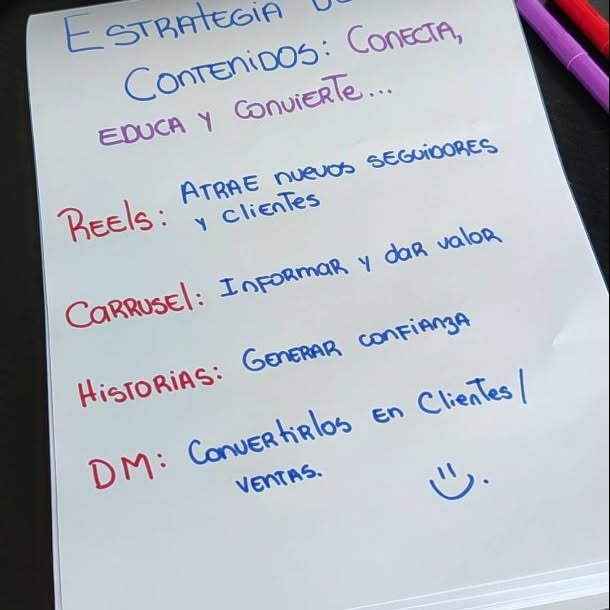 ESTRATEGIA
CONTENIDOS: CONECTA,
EDUCA Y CONVIERTE...
REEls: ATRAE nuevos SEGUIDORES
y clientes
CARRUSEl: InFORMAR y daR valoR
HISTORIAS: GENERAR CONFIANZA
DM: CONVERTIRlos En Clientes/
VENTAS.